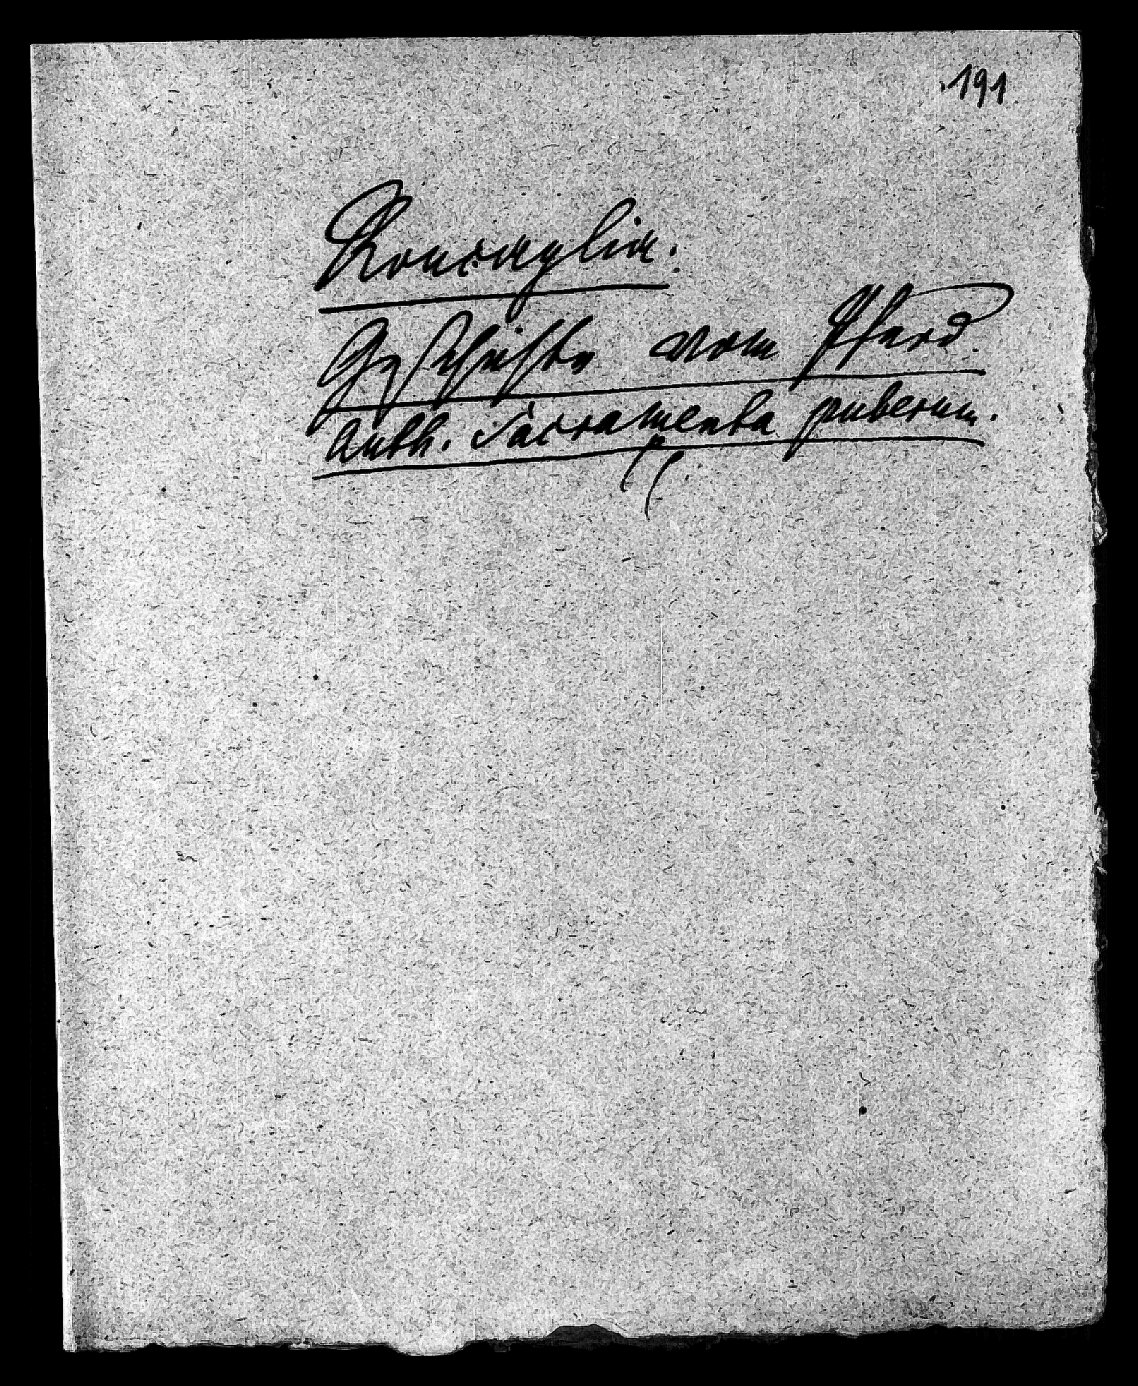 191
Roncaglia.
Geschichte vom Pferd.
Auth. Sacramenta puberum.